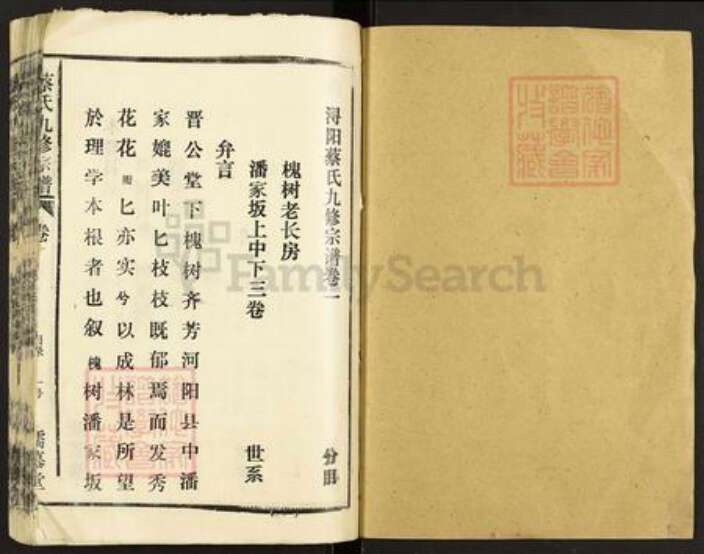 浔阳蔡氏九修宗谱卷二
分目
槐树老长房
潘家坂上中下三卷
世系
弁言
晋公堂下槐树齐芳河阳县中潘
家媲美叶匕枝枝既郁焉而发秀
花花匕亦实兮以成林是所望
於理学本根者也叙槐树潘家坂
蔡氏九修宗谱
卷
儒慕堂
FamilySearch